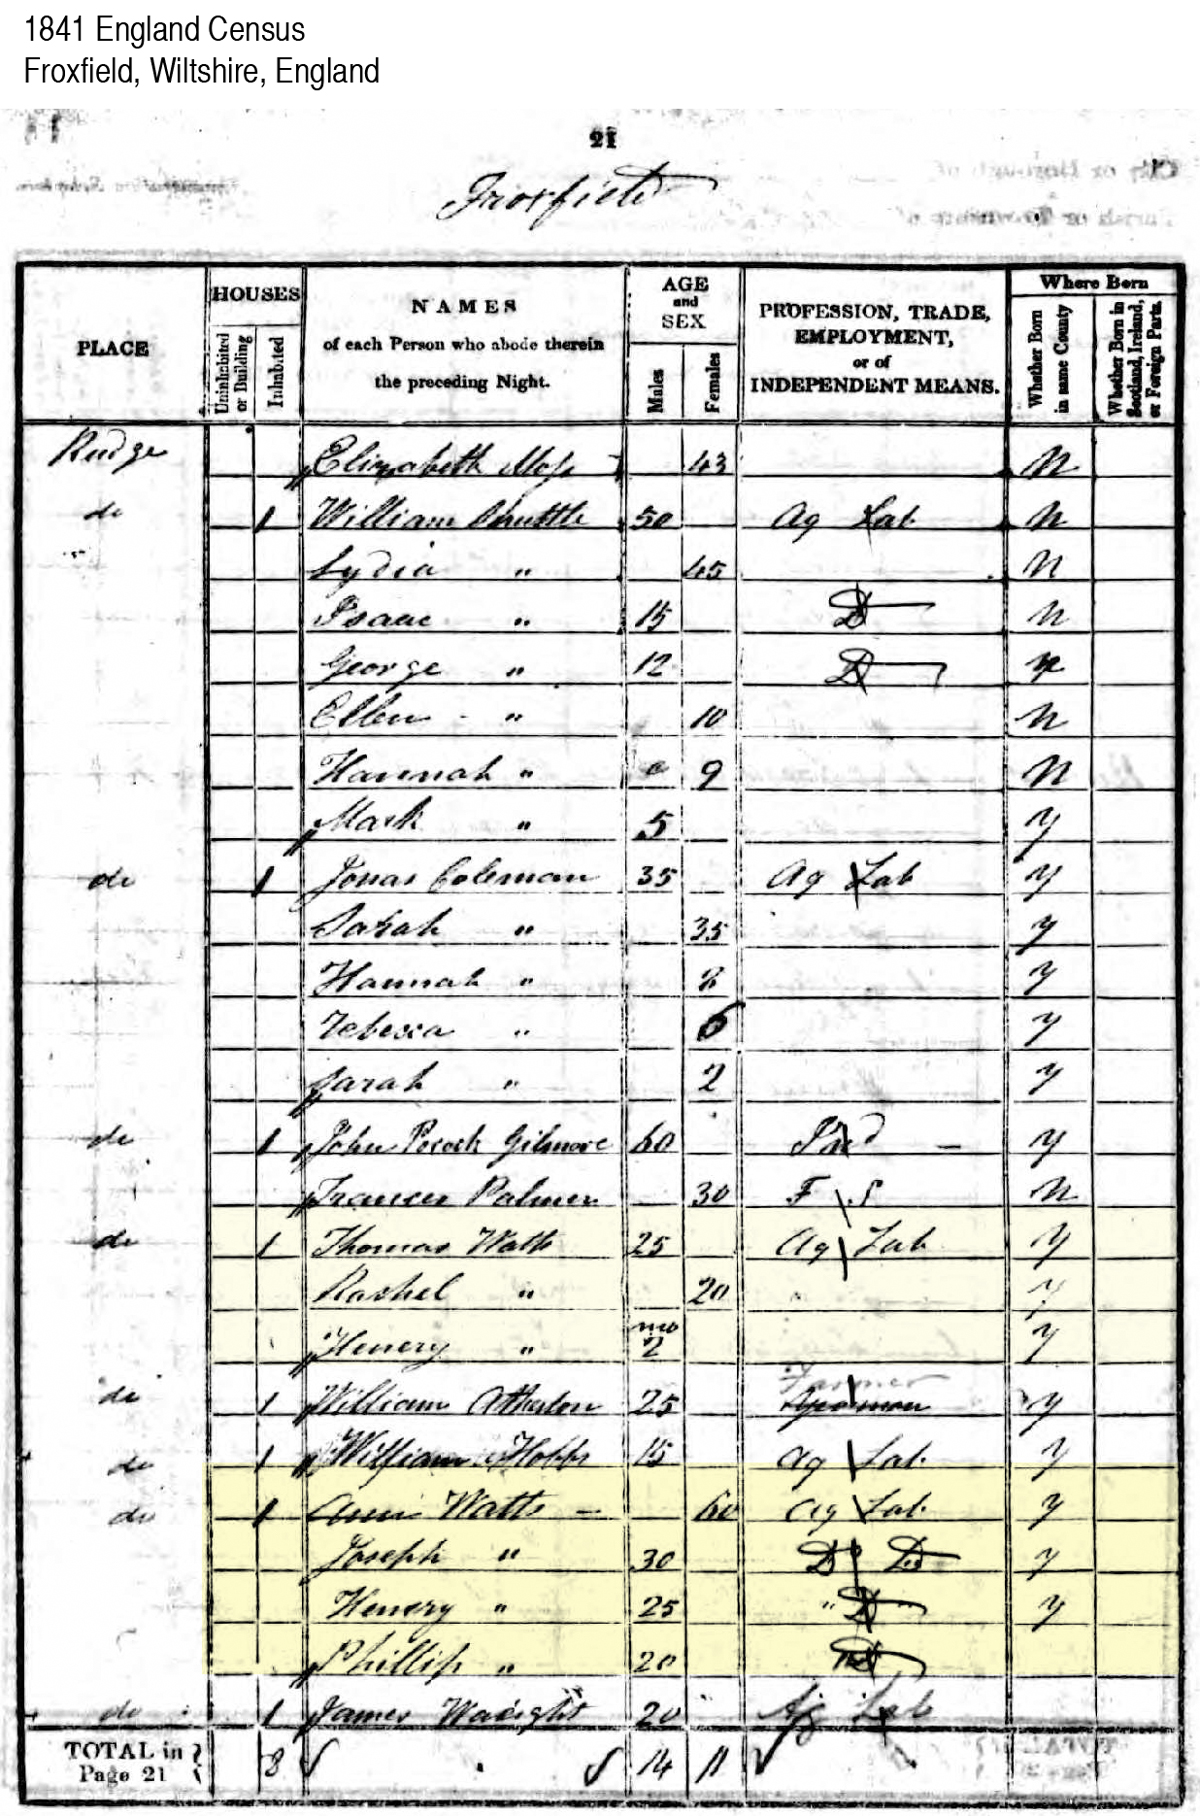 1841 England Census
Froxfield, Wiltshire, England
21
Froxfield
PLACE
HOUSES
Uninhabited or Building
Inhabited
NAMES
of each Person who abode therein
the preceding Night.
AGE
and
SEX
Males
Females
PROFESSION, TRADE,
EMPLOYMENT,
or of
INDEPENDENT MEANS.
Where Born
Whether Born in same County
Whether Born in Scotland, Ireland, or Foreign Parts.
Rudge Elizabeth Moss 43 N
do 1 William 50 Ag Lab N
Lydia " 45 N
Isaac " 15 Do N
George " 12 Do N
Ellen " 10 N
Hannah " 9 N
Mark " 5 y
do 1 Jonas Coleman 35 Ag Lab y
Sarah " 35 y
Hannah " 8 y
Rebecca " 6 y
Sarah " 2 y
do 1 John Pocock Gilmore 60 Ind y
Frances Palmer 30 F S N
do 1 Thomas Watts 25 Ag Lab y
Rachel " 20 y
Henery " mo 2 y
Farmer
do 1 William Atherton 25 y
do 1 William Hobbs 15 Ag Lab y
do 1 Ann Watts 60 Ag Lab y
Joseph " 30 Do Do y
Henery " 25 " Do " y
Phillip " 20 Do
do 1 James 20 Ag Lab
TOTAL in
Page 21
8 14 11